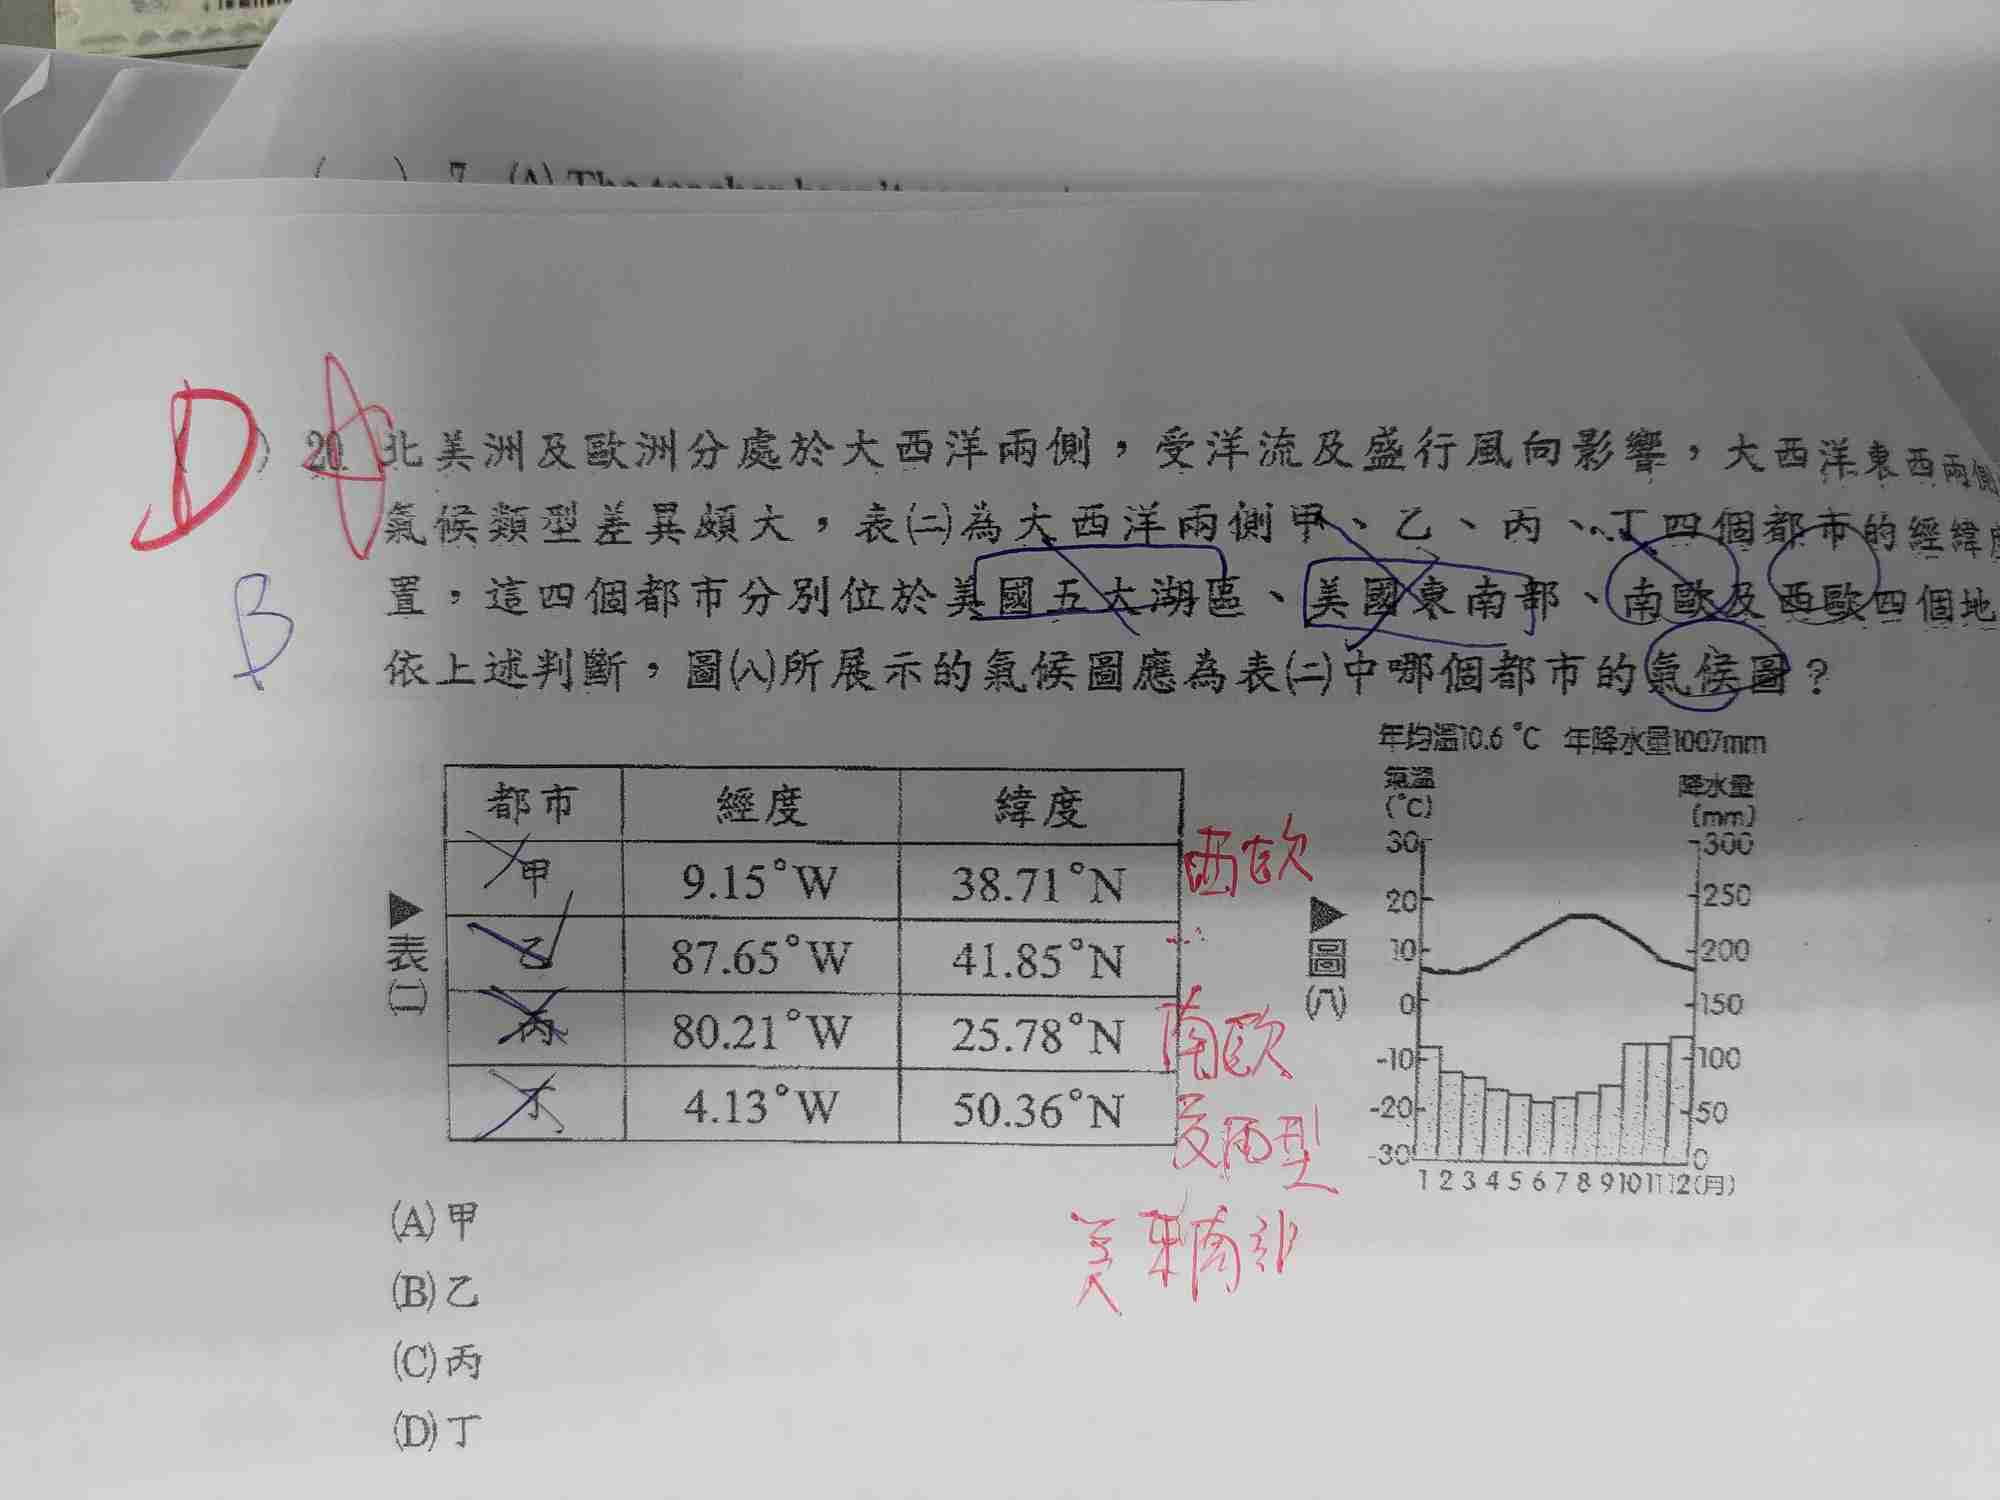 ( ) 7. (A) The teacher hasn't
D
A
B
( ) 20. 北美洲及歐洲分處於大西洋兩側，受洋流及盛行風向影響，大西洋東西兩側
氣候類型差異頗大，表㈡為大西洋兩側甲、乙、丙、丁四個都市的經緯度
置，這四個都市分別位於美國五大湖區、美國東南部、南歐及西歐四個地
依上述判斷，圖㈧所展示的氣候圖應為表㈡中哪個都市的氣候圖？
年均溫10.6℃ 年降水量1007mm
氣溫 (℃)
降水量 (mm)
30 20 10 0 -10 -20 -30
300 250 200 150 100 50 0
1 2 3 4 5 6 7 8 9 10 11 12(月)
▶圖㈧
▶表㈡
都市 經度 緯度
甲 9.15°W 38.71°N
乙 87.65°W 41.85°N
丙 80.21°W 25.78°N
丁 4.13°W 50.36°N
西欧
南欧
美東南部
(A)甲
(B)乙
(C)丙
(D)丁